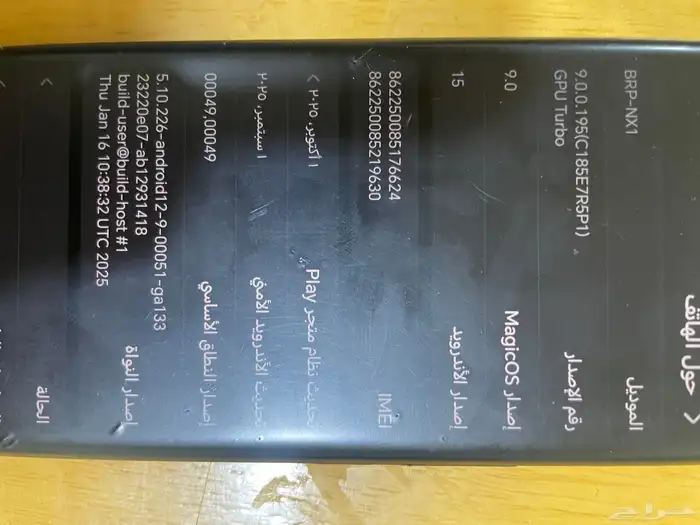 حول الهاتف
الموديل
BRP-NX1
رقم الإصدار
9.0.0.195(C185E7R5P1)
GPU Turbo
إصدار MagicOS
9.0
إصدار الأندرويد
15
IMEI
862250085176624
862250085219630
تحديث نظام متجر Play
١ أكتوبر، ٢٠٢٥
تحديث الأندرويد الأمني
١ سبتمبر، ٢٠٢٥
إصدار النطاق الأساسي
00049,00049
إصدار النواة
5.10.226-android12-9-00051-ga133
23220e07-ab12931418
build-user@build-host #1
Thu Jan 16 10:38:32 UTC 2025
الحالة
حراج